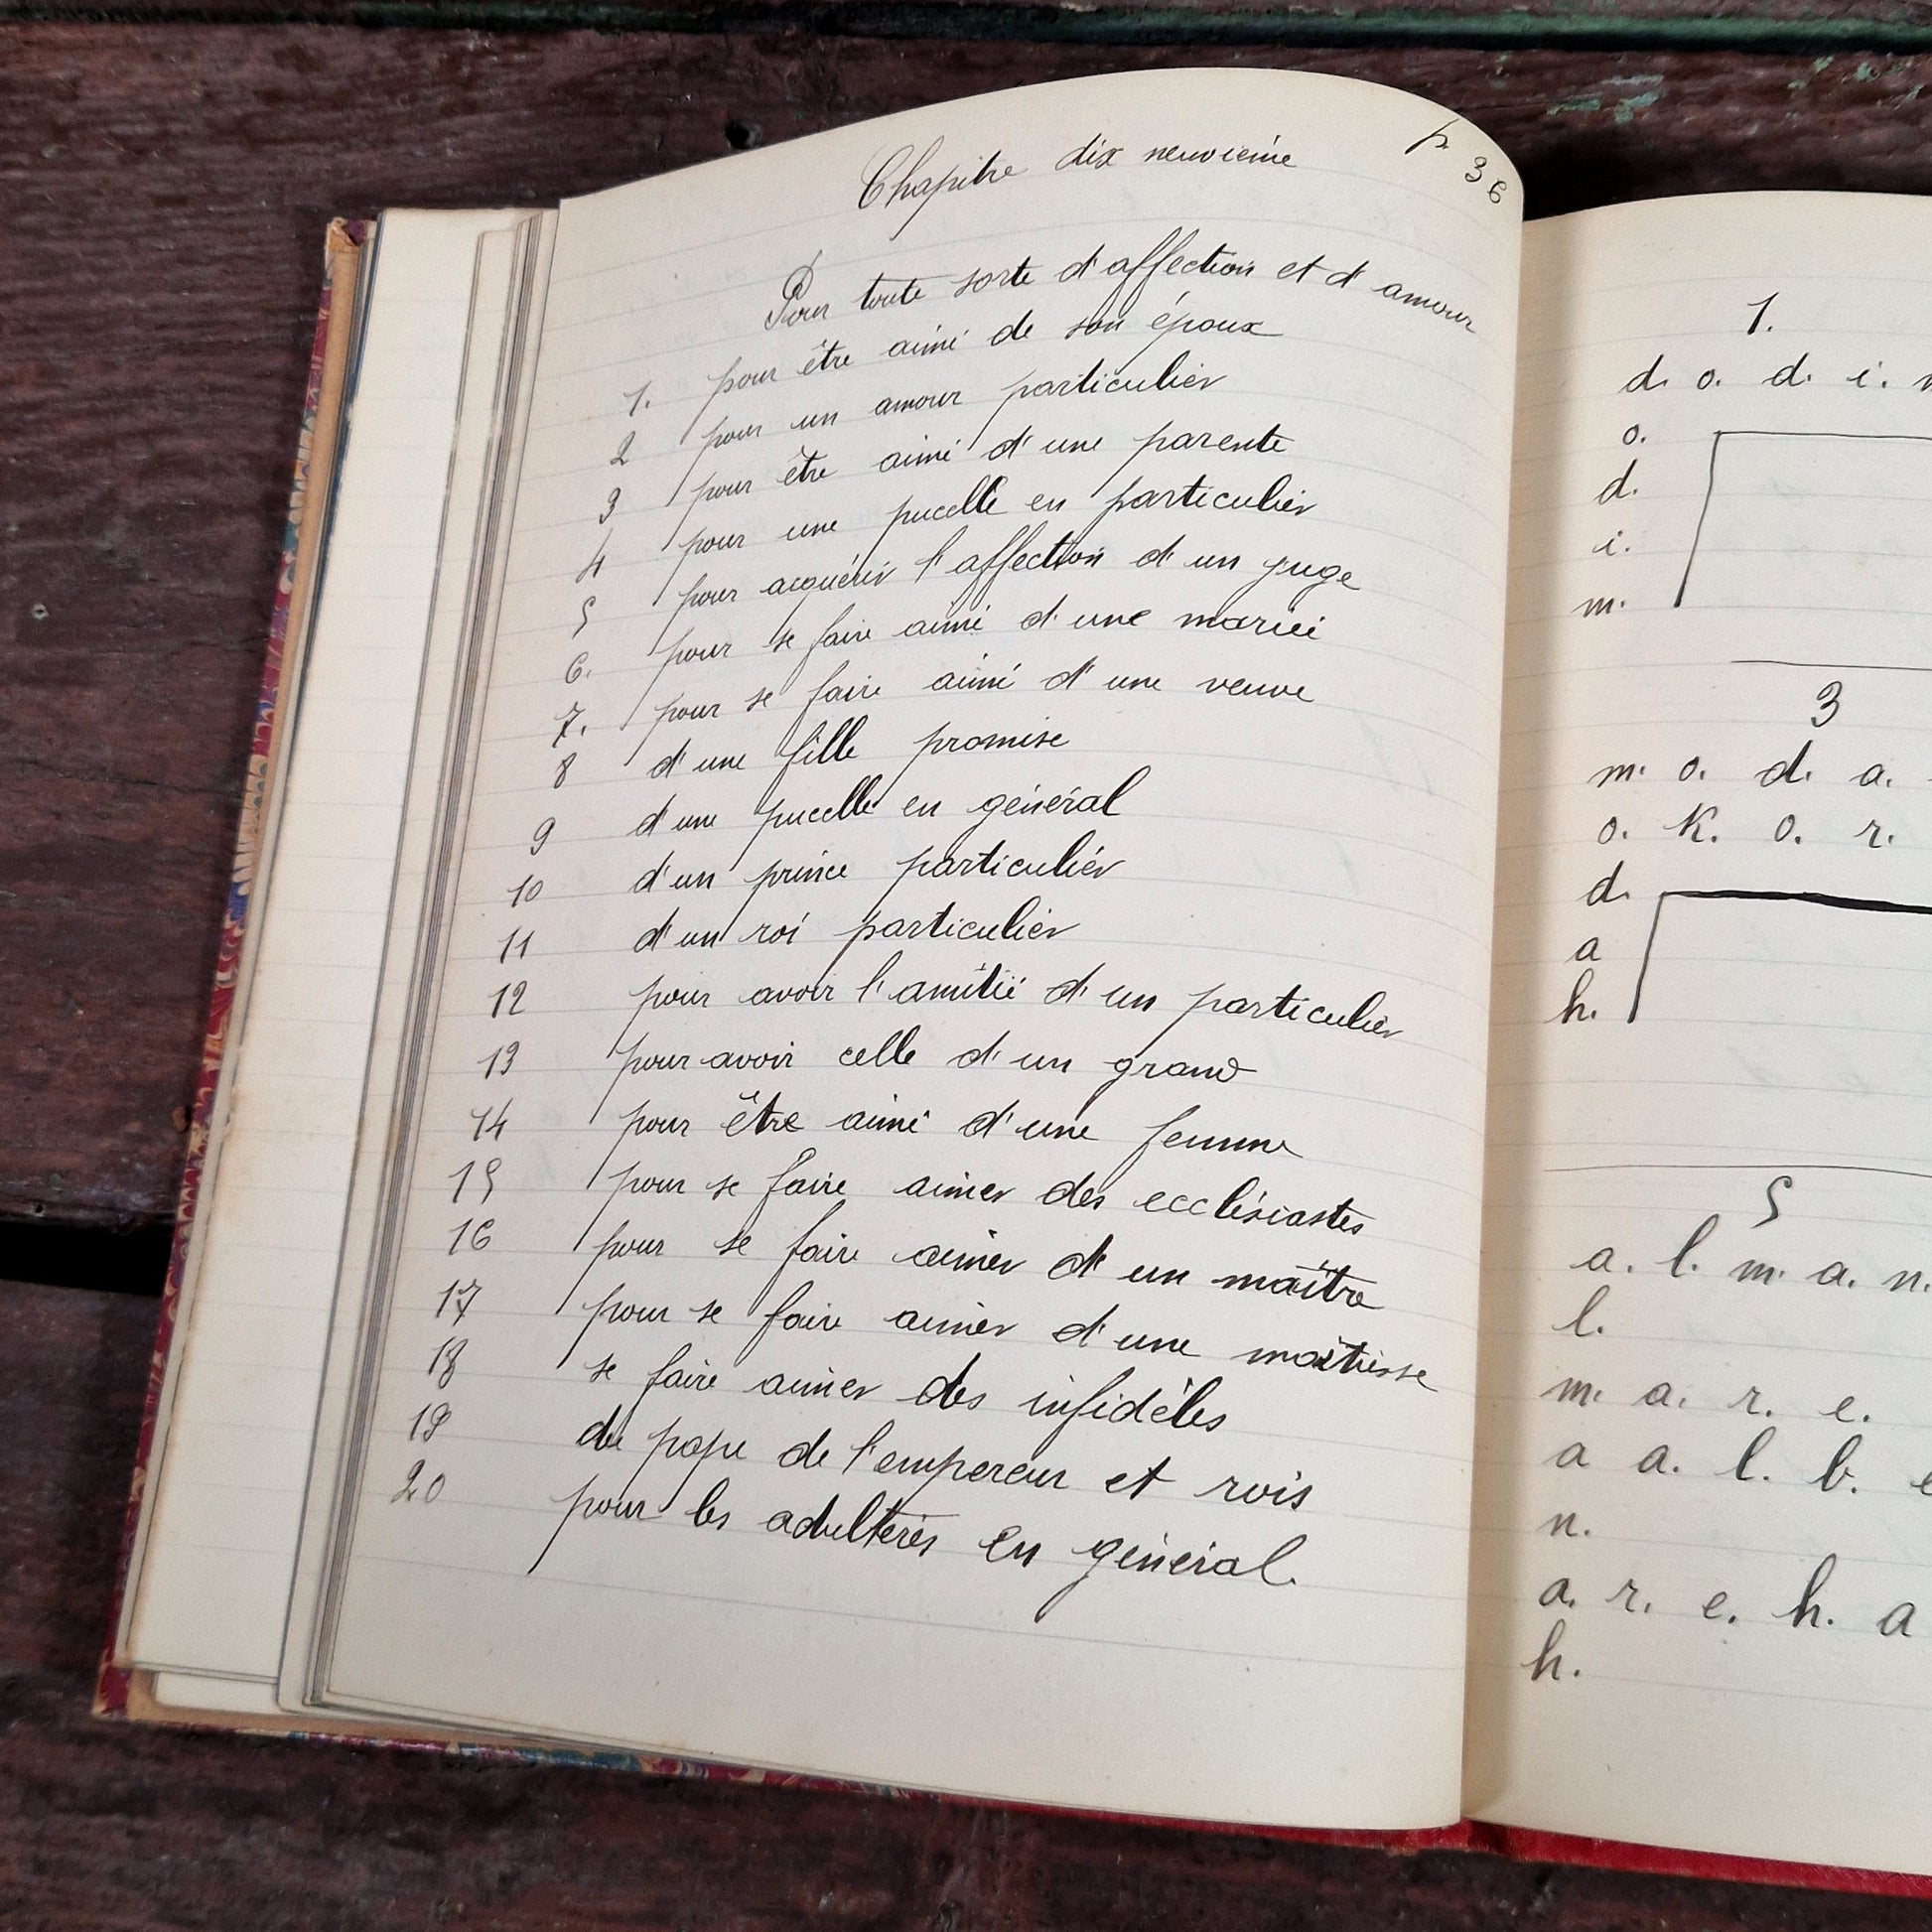 Chapitre dix neuvième
p. 36
Pour toute sorte d'affection et d'amour
1. pour être aimé de son époux
2 pour un amour particulier
3 pour être aimé d'une parente
4 pour une pucelle en particulier
5 pour acquérir l'affection d'un juge
6. pour se faire aimé d'une mariée
7. pour se faire aimé d'une veuve
8 d'une fille promise
9 d'une pucelle en général
10 d'un prince particulier
11 d'un roi particulier
12 pour avoir l'amitié d'un particulier
13 pour avoir celle d'un grand
14 pour être aimé d'une femme
15 pour se faire aimer des ecclésiastes
16 pour se faire aimer d'un maître
17 pour se faire aimer d'une maîtresse
18 se faire aimer des infidèles
19 du pape de l'empereur et rois
20 pour les adultères en général.
1.
d. o. d. i.
o.
d.
i.
m.
3
m. o. d. a.
o. K. o. r.
d.
a
h.
5
a. l. m. a. n.
l.
m. a. r. e.
a a. l. b. e
n.
a. r. e. h. a
h.